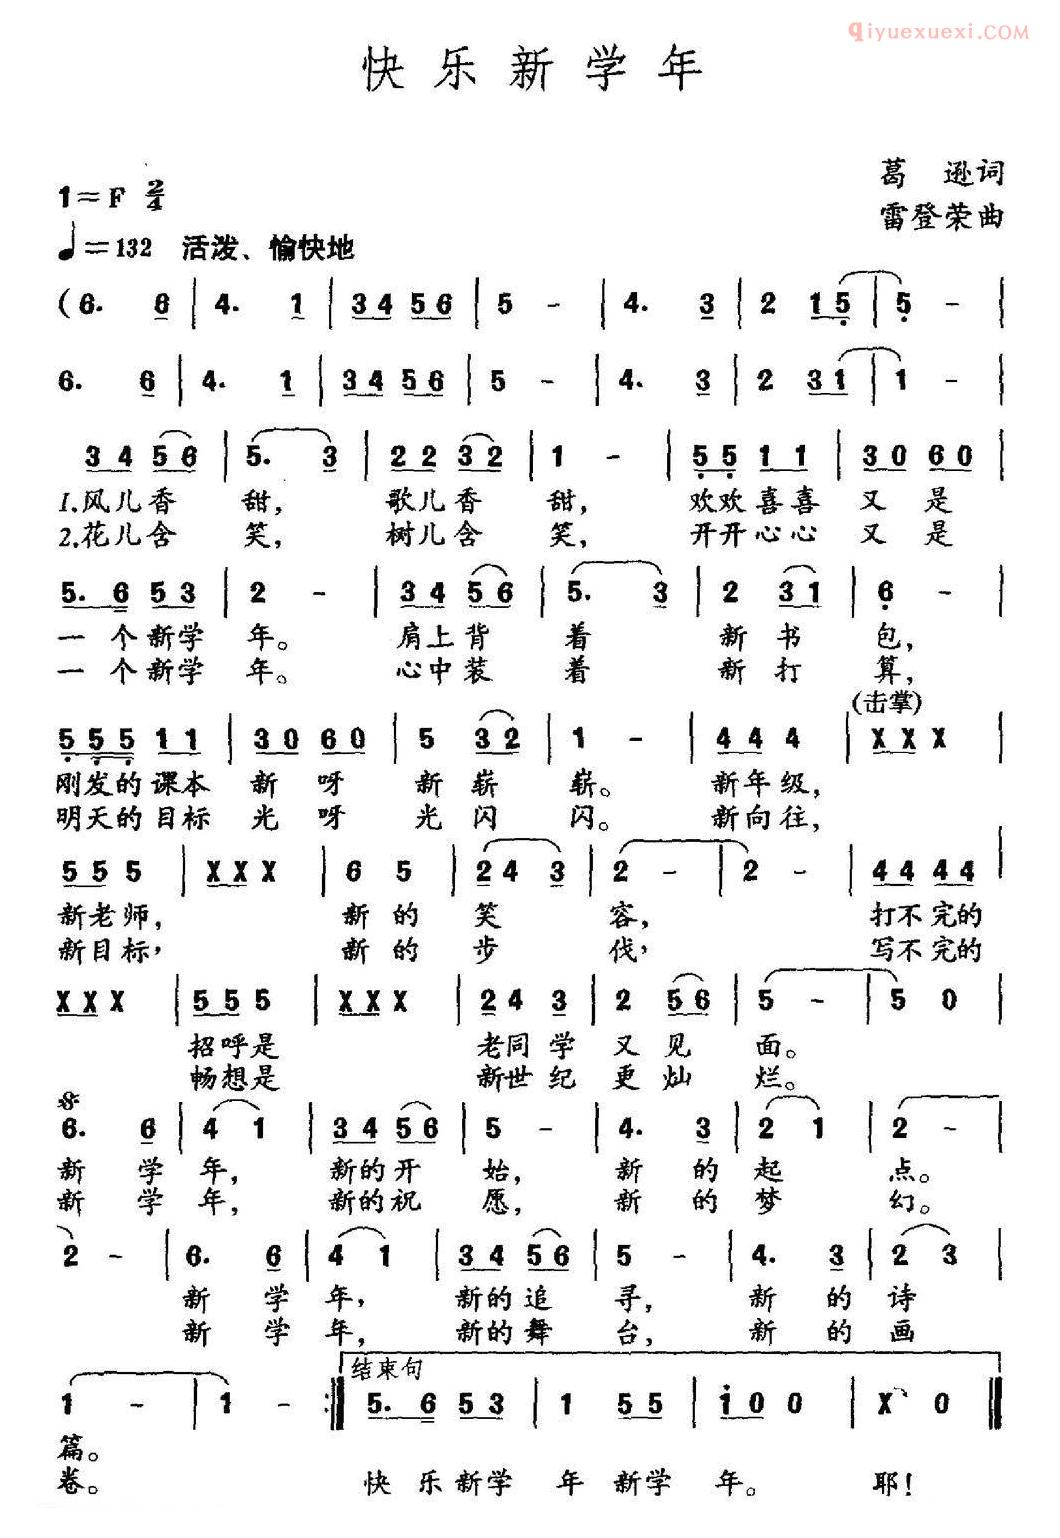 qiyuexuexi.COM
快乐新学年
葛 逊词
1=F 2/4
雷登荣曲
♩=132 活泼、愉快地
(6. 6 | 4. 1 | 34 56 | 5 - | 4. 3 | 2 15 | 5 - |
6. 6 | 4. 1 | 34 56 | 5 - | 4. 3 | 2 31 | 1 - |
34 56 | 5. 3 | 22 32 | 1 - | 55 11 | 30 60 |
1.风儿香 甜, 歌儿香 甜, 欢欢喜喜 又 是
2.花儿含 笑, 树儿含 笑, 开开心心 又 是
5. 6 53 | 2 - | 34 56 | 5. 3 | 2 31 | 6 - |
一 个新学 年。 肩上背 着 新 书 包,
一 个新学 年。 心中装 着 新 打 算,
(击掌)
555 11 | 30 60 | 5 32 | 1 - | 44 4 | XX X |
刚发的课本 新 呀 新 崭 崭。 新年级,
明天的目标 光 呀 光 闪 闪。 新向往,
55 5 | XX X | 6 5 | 2 4 3 | 2 - | 2 - | 44 44 |
新老师, 新 的 笑 容, 打不完的
新目标, 新 的 步 伐, 写不完的
XX X | 55 5 | XX X | 2 4 3 | 2 56 | 5 - | 5 0 |
招呼是 老同学 又 见 面。
畅想是 新世纪 更 灿 烂。
6. 6 | 4 1 | 34 56 | 5 - | 4. 3 | 2 1 | 2 - |
新 学 年, 新的开 始, 新 的 起 点。
新 学 年, 新的祝 愿, 新 的 梦 幻。
2 - | 6. 6 | 4 1 | 34 56 | 5 - | 4. 3 | 2 3 |
新 学 年, 新的追 寻, 新 的 诗
新 学 年, 新的舞 台, 新 的 画
结束句
1 - | 1 - :‖ 5. 6 53 | 1 55 | 10 0 | X 0 ‖
篇。
卷。 快 乐新学 年 新学 年。 耶!